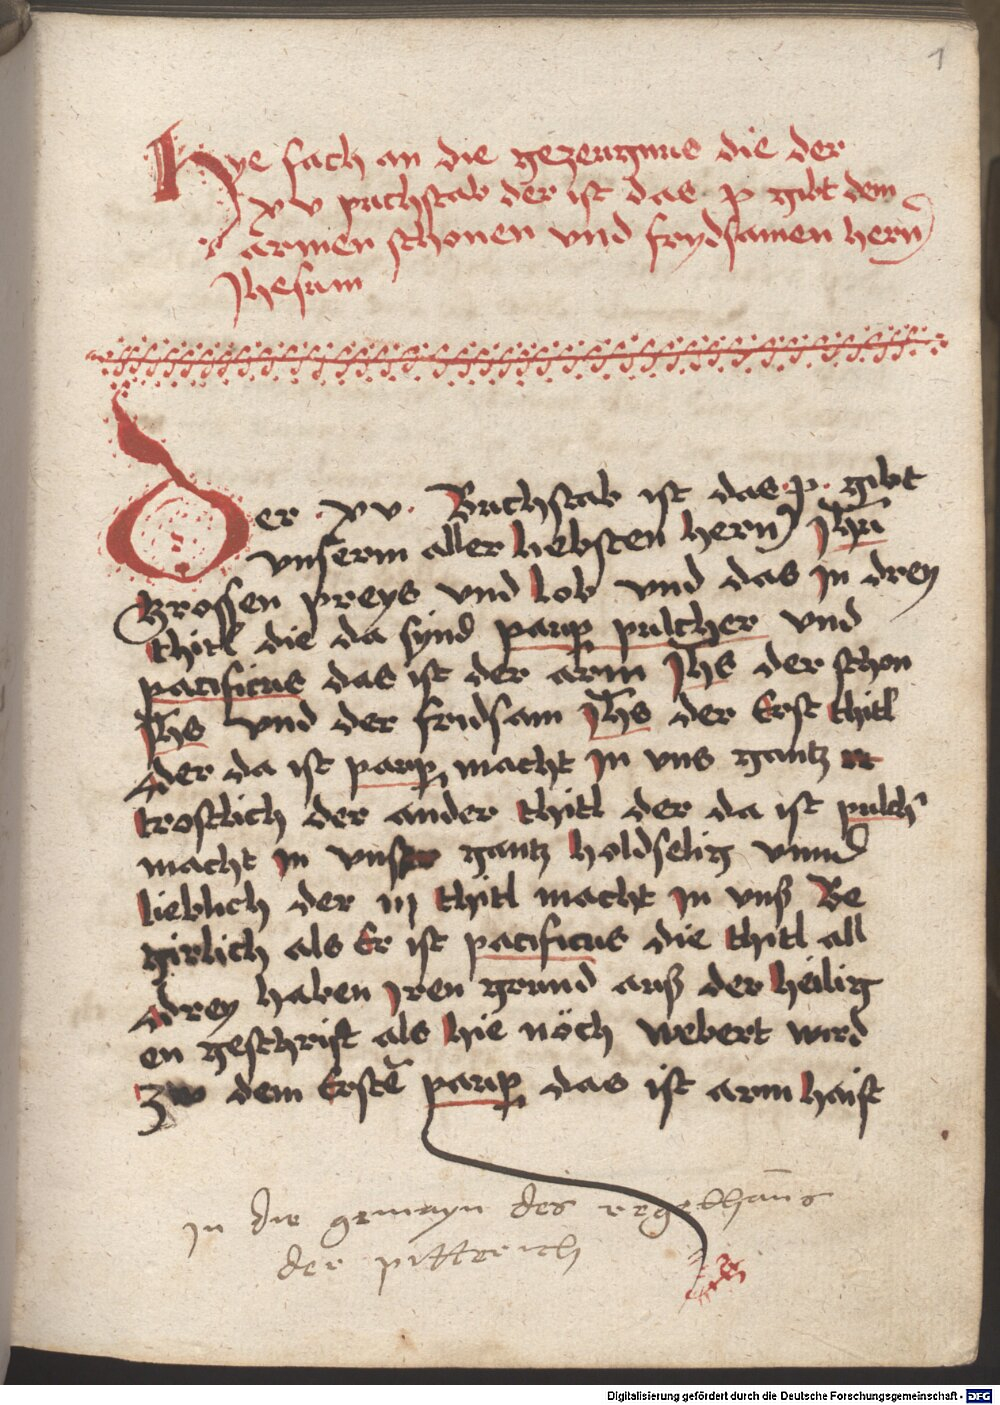 1
Hye fach an die gezeugnus die der
xv puchstab der ist das p gibt dem
armen schonen vnd frydsamen hern
Jhesum
Der · xv · Buchstab ist das · p · gibt
vnserm aller liebsten hern Jhū
Grossen preys vnd lob vnd das Jn drey
thitl die da synd paup pulcher vnd
pacificus das ist der arm Jhs der schon
Jhs vnd der fridsam Jhs der Erst thitl
der da ist paup macht Jn vns gantz
trostlich der ander thitl der da ist pulch
macht Jn vns gantz holdselig vnnd
lieblich der iij thitl macht Jn vnß Be
girlich als Er ist pacificus die thitl all
drey haben Jren grund auß der heilig
en geschrift als hie nöch webert wird
Zw dem Erstē paup das ist arm haist
Jn die gemayn des regelhaus
der pitterich
Digitalisierung gefördert durch die Deutsche Forschungsgemeinschaft - DFG